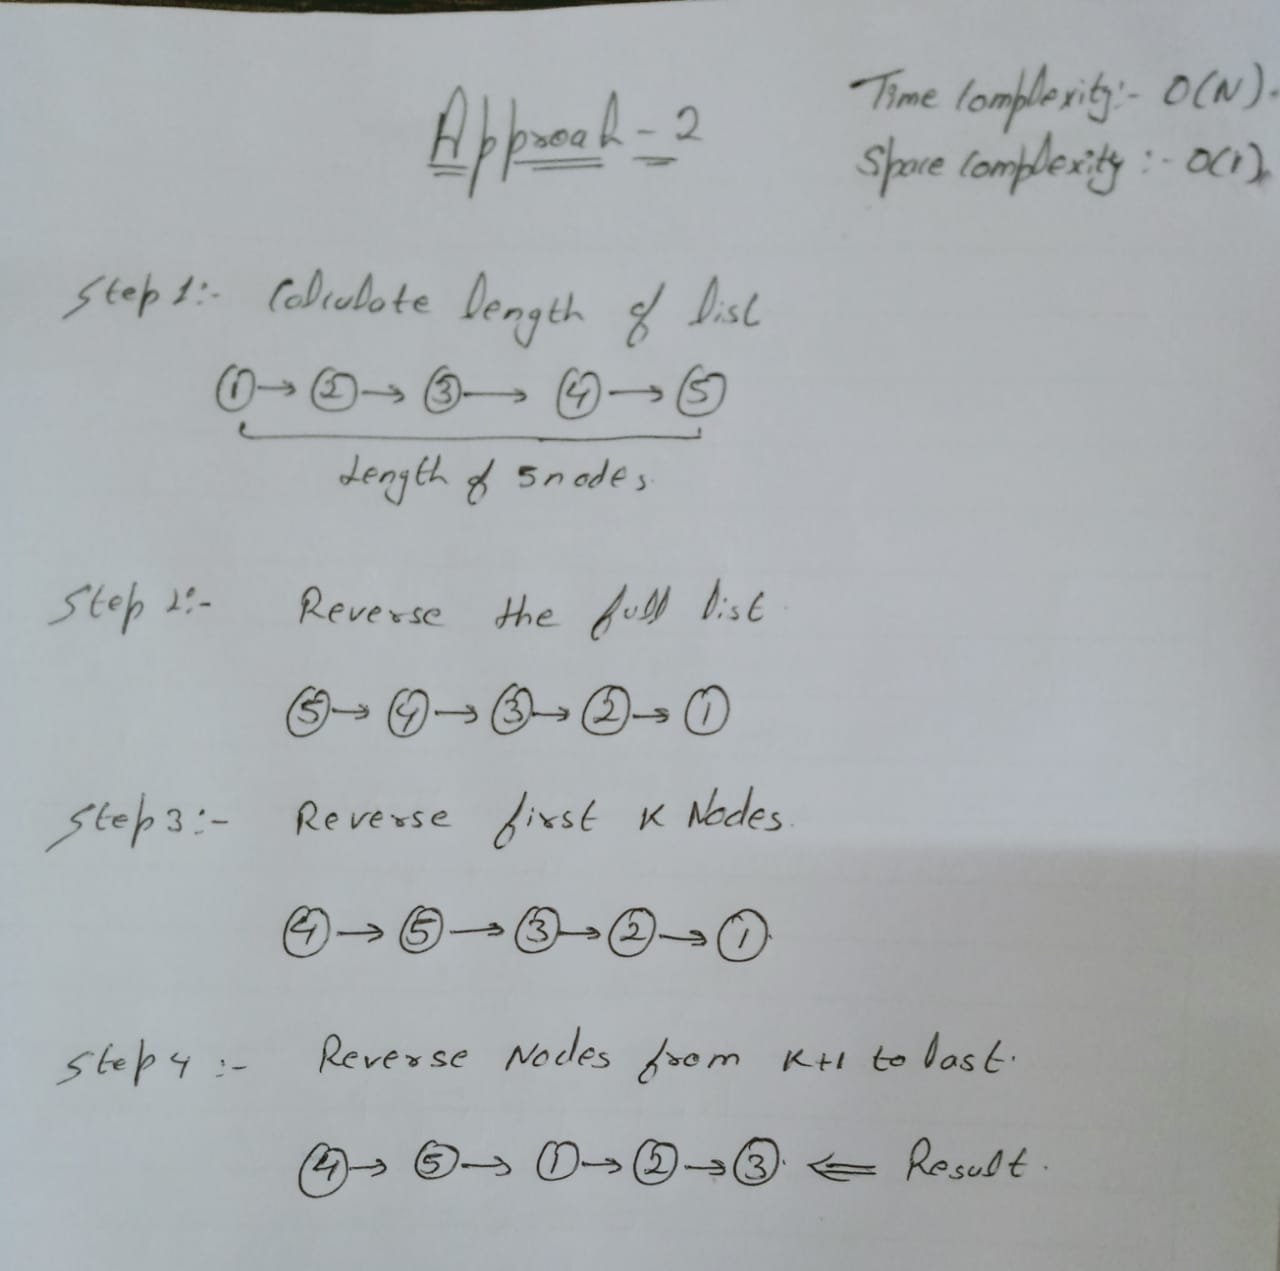 Approah - 2
Time Complexity:- O(N).
Space Complexity :- O(1).
Step 1:- Calculate length of list
1 → 2 → 3 → 4 → 5
Length of 5 nodes.
Step 2:- Reverse the full list.
5 → 4 → 3 → 2 → 1
Step 3:- Reverse first K Nodes.
4 → 5 → 3 → 2 → 1.
Step 4 :- Reverse Nodes from K+1 to last.
4 → 5 → 1 → 2 → 3. ⇐ Result.